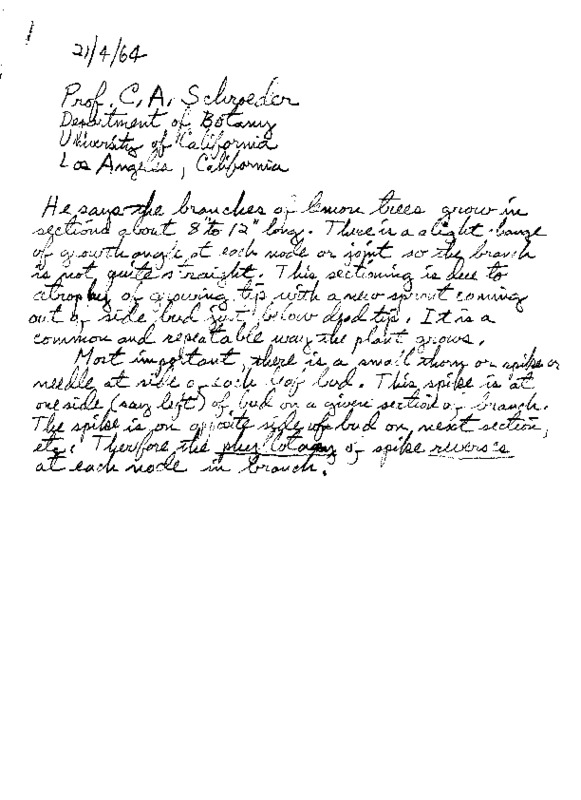 21/4/64
Prof. C. A. Schroeder
Department of Botany
University of California
Los Angeles, California
He says the branches of lemon trees grow in
sections about 8" to 12" long. There is a slight change
of growth angle at each node or joint so the branch
is not quite straight. This sectioning is due to
atrophy of growing tip with a new sprout coming
out of side bud just below dead tip. It is a
common and repeatable way the plant grows.
Most important, there is a small thorn or spike or
needle at side of each leaf bud. This spike is at
one side (say left) of bud on a given section of branch.
The spike is on opposite side of bud on next section,
etc. Therefore the of spike reverses
at each node in branch.